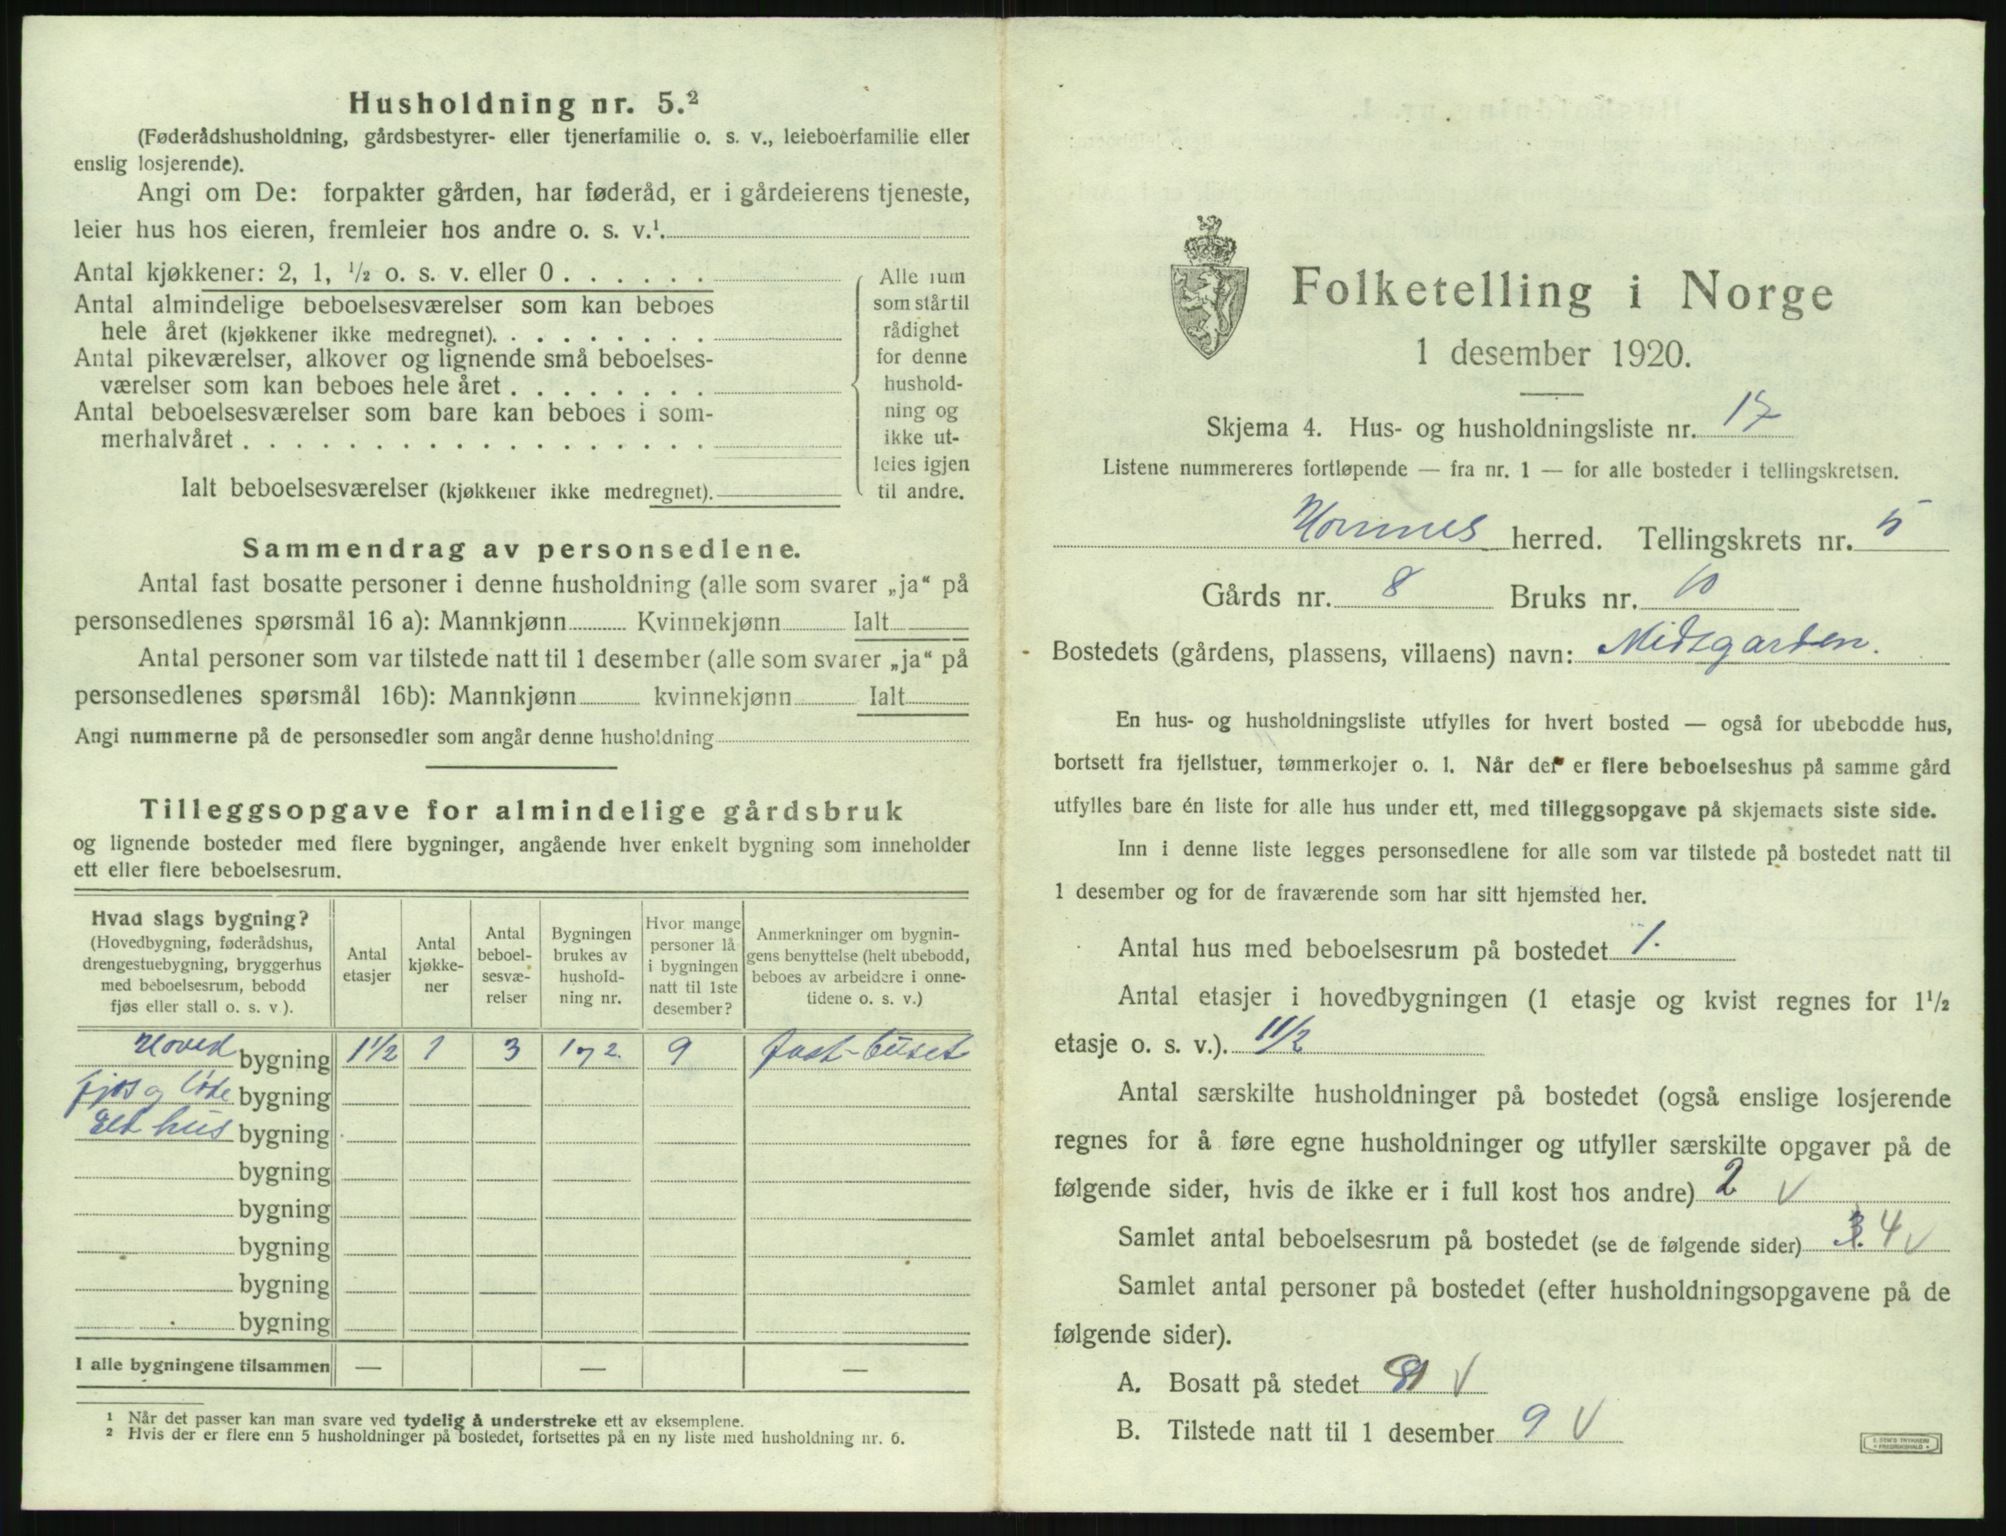 Husholdning nr. 5.²
(Føderådshusholdning, gårdsbestyrer- eller tjenerfamilie o. s. v., leieboerfamilie eller
enslig losjerende).
Angi om De: forpakter gården, har føderåd, er i gårdeierens tjeneste,
leier hus hos eieren, fremleier hos andre o. s. v.¹
Antal kjøkkener: 2, 1, ½ o. s. v. eller 0
Antal almindelige beboelsesværelser som kan beboes
hele året (kjøkkener ikke medregnet).
Antal pikeværelser, alkover og lignende små beboelses-
værelser som kan beboes hele året
Antal beboelsesværelser som bare kan beboes i som-
merhalvåret
Ialt beboelsesværelser (kjøkkener ikke medregnet).
Alle rum
som står til
rådighet
for denne
hushold-
ning og
ikke ut-
leies igjen
til andre.
Sammendrag av personsedlene.
Antal fast bosatte personer i denne husholdning (alle som svarer „ja“ på
personsedlenes spørsmål 16 a): Mannkjønn Kvinnekjønn Ialt
Antal personer som var tilstede natt til 1 desember (alle som svarer „ja“ på
personsedlenes spørsmål 16b): Mannkjønn kvinnekjønn Ialt
Angi nummerne på de personsedler som angår denne husholdning
Tilleggsopgave for almindelige gårdsbruk
og lignende bosteder med flere bygninger, angående hver enkelt bygning som inneholder
ett eller flere beboelsesrum.
Hvad slags bygning?
(Hovedbygning, føderådshus,
drengestuebygning, bryggerhus
med beboelsesrum, bebodd
fjøs eller stall o. s. v ).
Antal
etasjer
Antal
kjøkke-
ner
Antal
beboel-
sesvæ-
relser
Bygningen
brukes av
hushold-
ning nr.
Hvor mange
personer lå
i bygningen
natt til 1ste
desember?
Anmerkninger om bygnin-
gens benyttelse (helt ubebodd,
beboes av arbeidere i onne-
tidene o. s. v.)
Hoved bygning 1½ 1 3 1 og 2. 9 fast-buset
fjos og löde bygning
Eld hus bygning
bygning
bygning
bygning
bygning
bygning
I alle bygningene tilsammen — — —
¹ Når det passer kan man svare ved tydelig å understreke ett av eksemplene.
² Hvis der er flere enn 5 husholdninger på bostedet, fortsettes på en ny liste med husholdning nr. 6.
Folketelling i Norge
1 desember 1920.
Skjema 4. Hus- og husholdningsliste nr. 17
Listene nummereres fortløpende — fra nr. 1 — for alle bosteder i tellingskretsen.
Hornnes herred. Tellingskrets nr. 5
Gårds nr. 8 Bruks nr. 10
Bostedets (gårdens, plassens, villaens) navn: Midsgarden.
En hus- og husholdningsliste utfylles for hvert bosted — også for ubebodde hus,
bortsett fra fjellstuer, tømmerkojer o. l. Når der er flere beboelseshus på samme gård
utfylles bare én liste for alle hus under ett, med tilleggsopgave på skjemaets siste side.
Inn i denne liste legges personsedlene for alle som var tilstede på bostedet natt til
1 desember og for de fraværende som har sitt hjemsted her.
Antal hus med beboelsesrum på bostedet 1.
Antal etasjer i hovedbygningen (1 etasje og kvist regnes for 1½
etasje o. s. v.). 1½
Antal særskilte husholdninger på bostedet (også enslige losjerende
regnes for å føre egne husholdninger og utfyller særskilte opgaver på de
følgende sider, hvis de ikke er i full kost hos andre) 2 √
Samlet antal beboelsesrum på bostedet (se de følgende sider) 3. 4 √
Samlet antal personer på bostedet (efter husholdningsopgavene på de
følgende sider).
A. Bosatt på stedet √
B. Tilstede natt til 1 desember 9 √